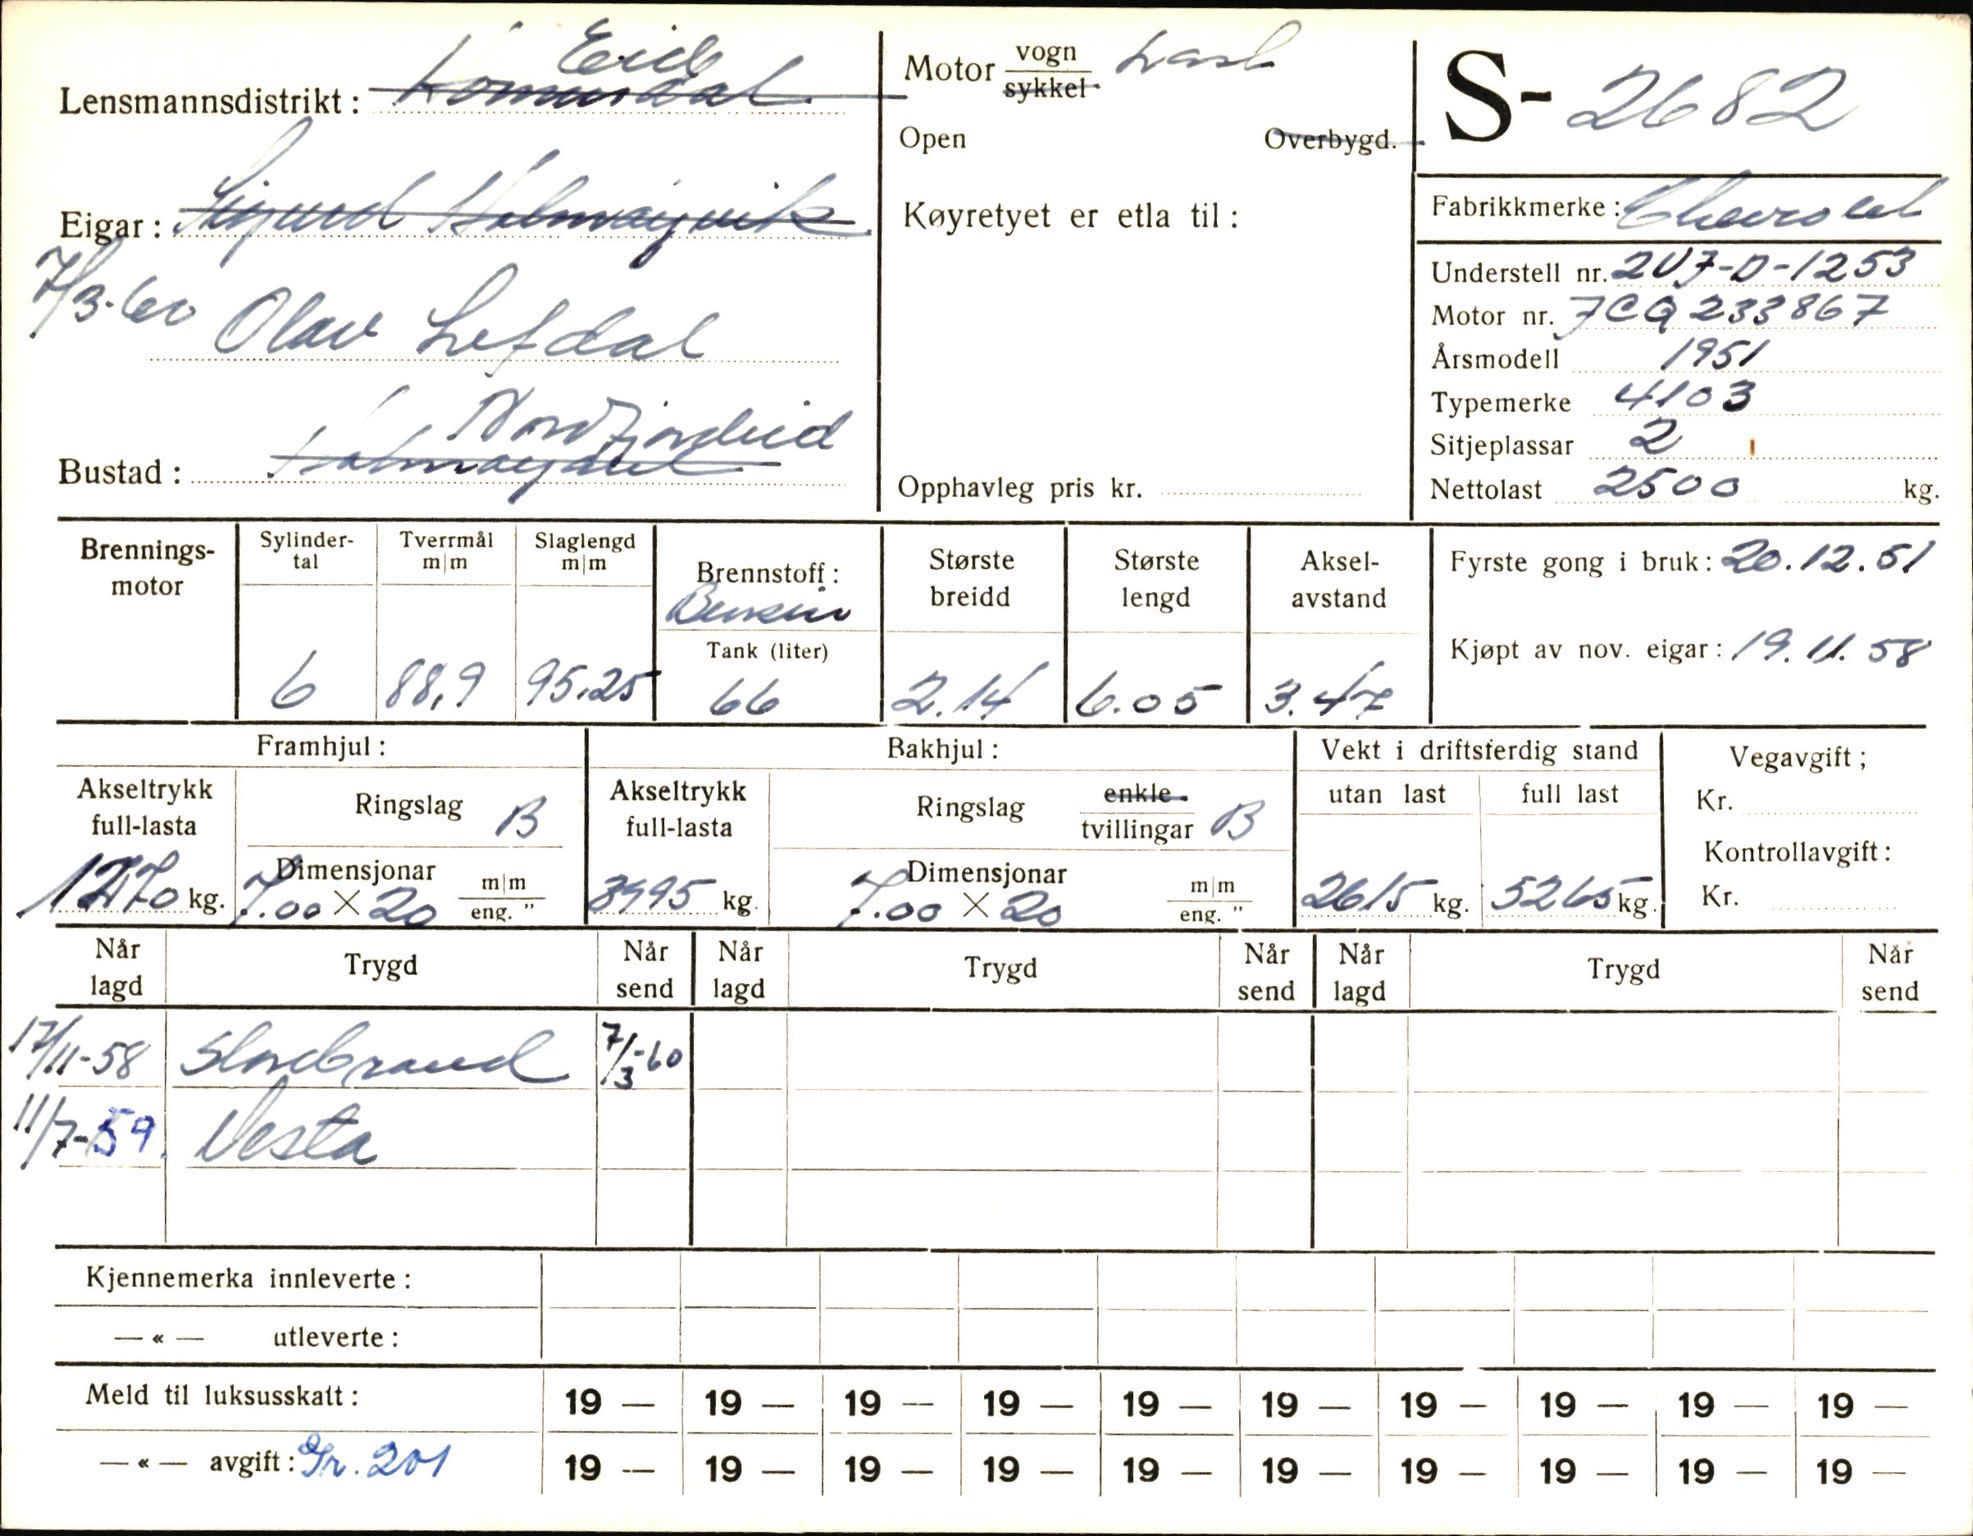 Lensmannsdistrikt: Eid
Eigar:
7/3-60 Olav Lefdal
Nordfjordeid
Bustad:
Motor vogn
sykkel Last
Open Overbygd.
Køyretyet er etla til:
Opphavleg pris kr.
S-2682
Fabrikkmerke: Chevrolet
Understell nr. 2UJ-D-1253
Motor nr. JCQ 233867
Årsmodell 1951
Typemerke 4103
Sitjeplassar 2
Nettolast 2500 kg.
Brennings-
motor
Sylinder-
tal
6
Tverrmål
m|m
88,9
Slaglengd
m|m
95.25
Brennstoff:
Bensin
Tank (liter)
66
Største
breidd
2.14
Største
lengd
6.05
Aksel-
avstand
3.47
Fyrste gong i bruk: 20.12.51
Kjøpt av nov. eigar: 19.11.58
Framhjul:
Akseltrykk
full-lasta
1270 kg.
Ringslag B
Dimensjonar m|m
7.00 × 20 eng. "
Bakhjul:
Akseltrykk
full-lasta
3995 kg.
Ringslag enkle
tvillingar B
Dimensjonar m|m
7.00 × 20 eng. "
Vekt i driftsferdig stand
utan last full last
2615 kg. 5265 kg.
Vegavgift;
Kr.
Kontrollavgift:
Kr.
Når
lagd Trygd Når
send Når
lagd Trygd Når
send Når
lagd Trygd Når
send
17/11-58 Storebrand 7/3-60
11/7-59. Vesta
Kjennemerka innleverte:
— « — utleverte:
Meld til luksusskatt: 19 — 19 — 19 — 19 — 19 — 19 — 19 — 19 — 19 — 19 —
— « — avgift: Gr. 201 19 — 19 — 19 — 19 — 19 — 19 — 19 — 19 — 19 — 19 —